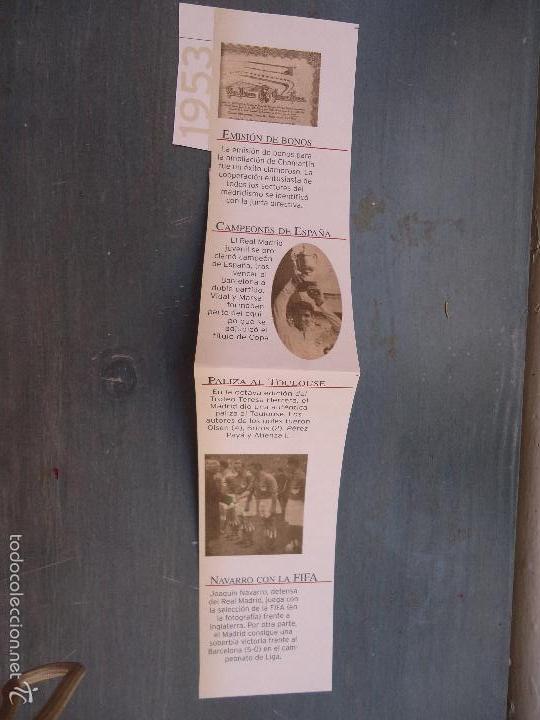 1953
EMISIÓN DE BONOS
La emisión de bonos para
la ampliación de Chamartín
fue un éxito clamoroso. La
cooperación entusiasta de
todos los sectores del
madridismo se identificó
con la junta directiva.
CAMPEONES DE ESPAÑA
El Real Madrid
juvenil se pro-
clamó campeón
de España, tras
vencer al
Barcelona a
doble partido.
Vidal y Marsal
formaban
parte del equi-
po que se
adjudicó el
título de Copa.
PALIZA AL TOULOUSE
En la octava edición del
Trofeo Teresa Herrera, el
Madrid dio una auténtica
paliza al Toulouse. Los
autores de los goles fueron
Olsen (4), Britos (2), Pérez
Payá y Atienza I.
NAVARRO CON LA FIFA
Joaquín Navarro, defensa
del Real Madrid, juega con
la selección de la FIFA (en
la fotografía) frente a
Inglaterra. Por otra parte,
el Madrid consigue una
soberbia victoria frente al
Barcelona (5-0) en el cam-
peonato de Liga.
todocoleccion.net